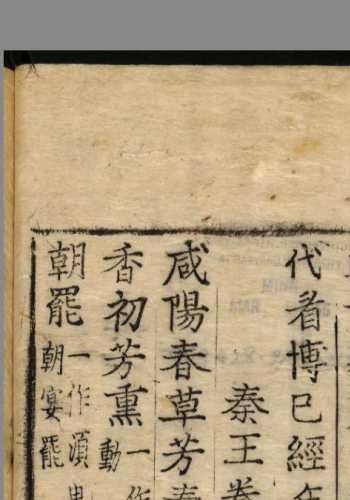 代看博已經
秦王卷
咸陽春草芳秦
香初芳熏一作動
朝罷一作須臾朝宴罷